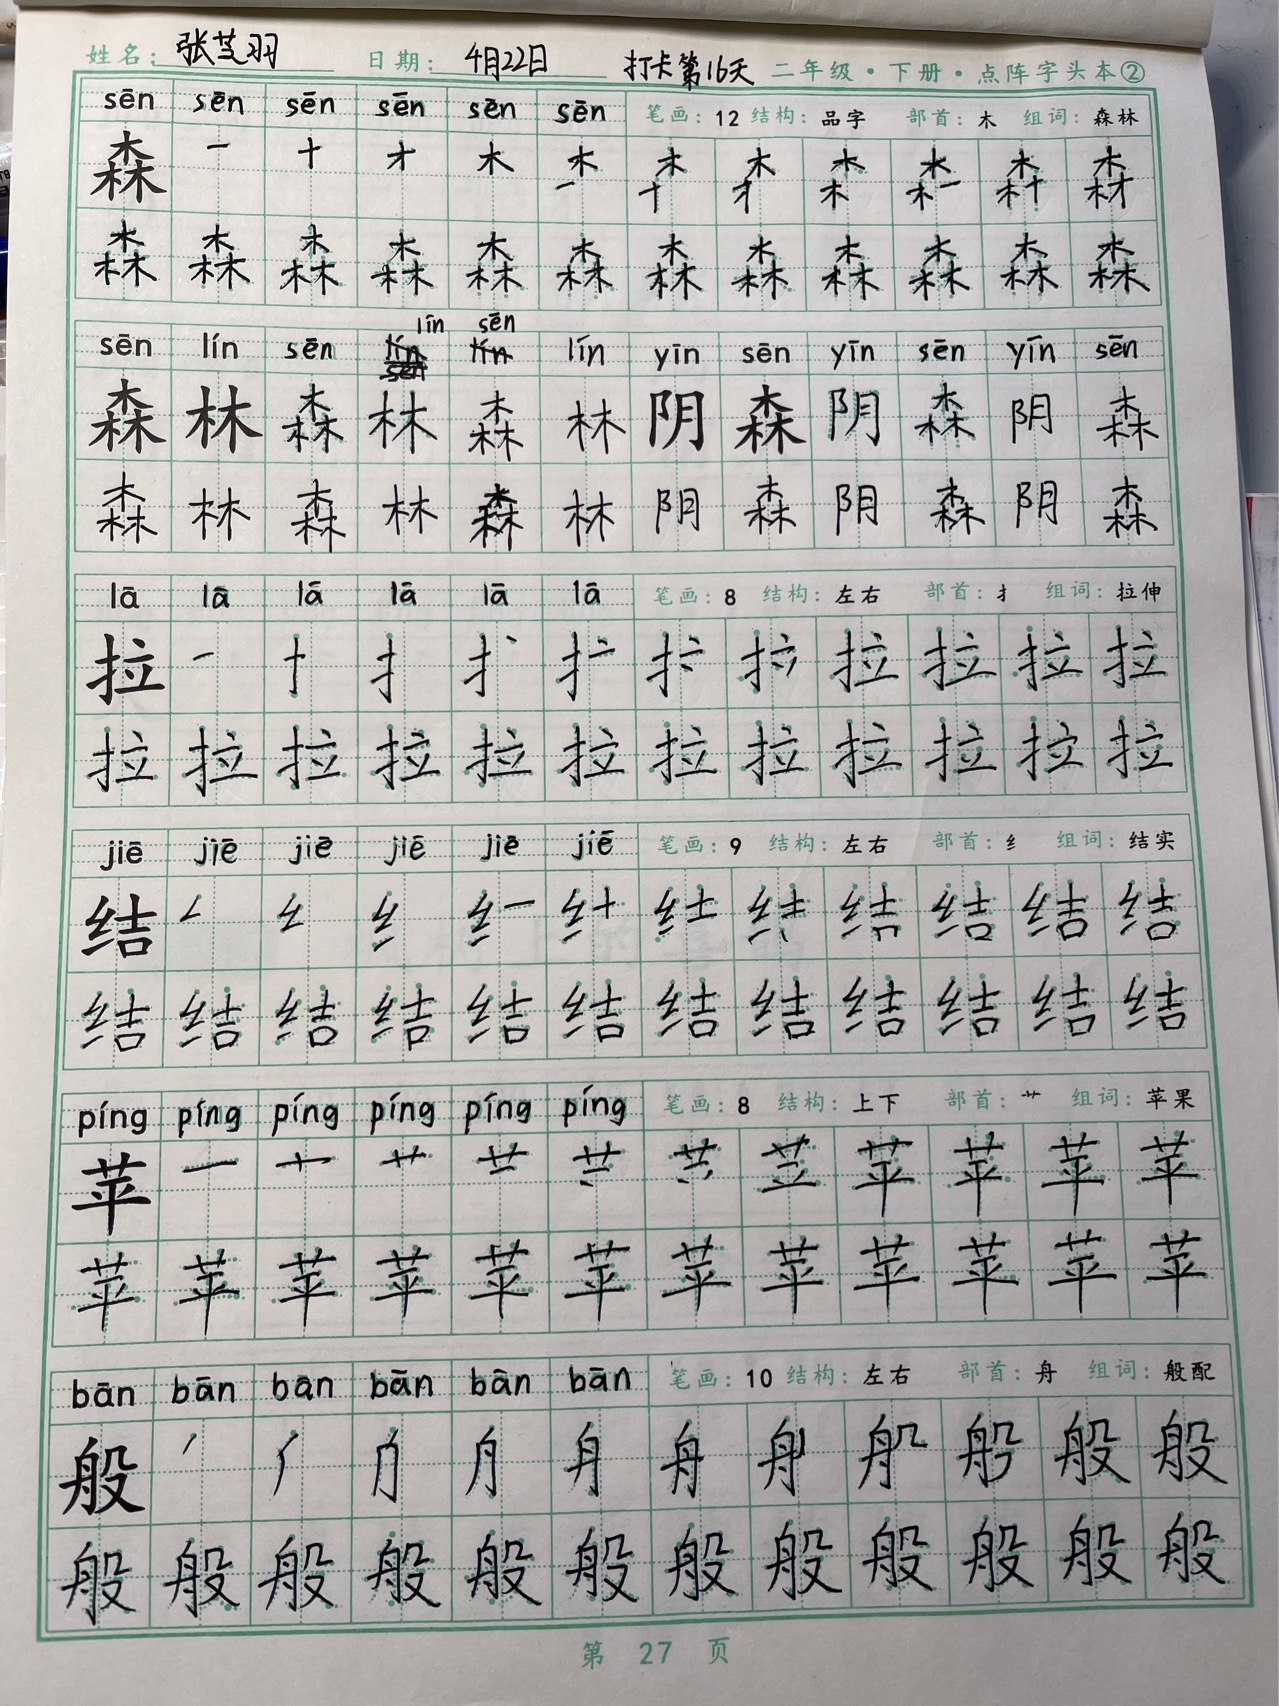 姓名：张芝羽 日期：4月22日 打卡第16天 二年级·下册·点阵字头本②
sēn sēn sēn sēn sēn sēn 笔画：12 结构：品字 部首：木 组词：森林
森 一 十 才 木
森 森 森 森 森 森 森 森 森 森 森 森
lín sēn
sēn lín sēn lín lín yīn sēn yīn sēn yīn sēn
sēn
森 林 森 林 森 林 阴 森 阴 森 阴 森
森 林 森 林 森 林 阴 森 阴 森 阴 森
lā lā lā lā lā lā 笔画：8 结构：左右 部首：扌 组词：拉伸
拉 一 十 扌 拉 拉 拉 拉
拉 拉 拉 拉 拉 拉 拉 拉 拉 拉 拉 拉
jiē jiē jiē jiē jiē jiē 笔画：9 结构：左右 部首：纟 组词：结实
结 纟 结 结 结
结 结 结 结 结 结 结 结 结 结 结 结
píng píng píng píng píng píng 笔画：8 结构：上下 部首：艹 组词：苹果
苹 一 十 艹 苹 苹 苹 苹
苹 苹 苹 苹 苹 苹 苹 苹 苹 苹 苹 苹
bān bān bān bān bān bān 笔画：10 结构：左右 部首：舟 组词：般配
般 舟 般 般
般 般 般 般 般 般 般 般 般 般 般 般
第 27 页